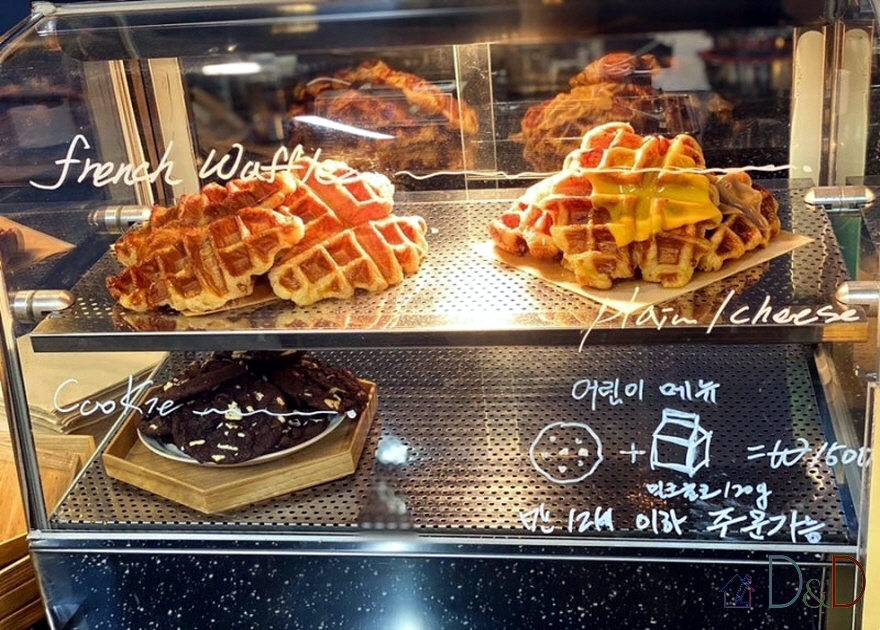 french waffle
plain/cheese
Cookie
어린이 메뉴
+ =₩1500
120g
만 12세 이하 주문가능
D&D